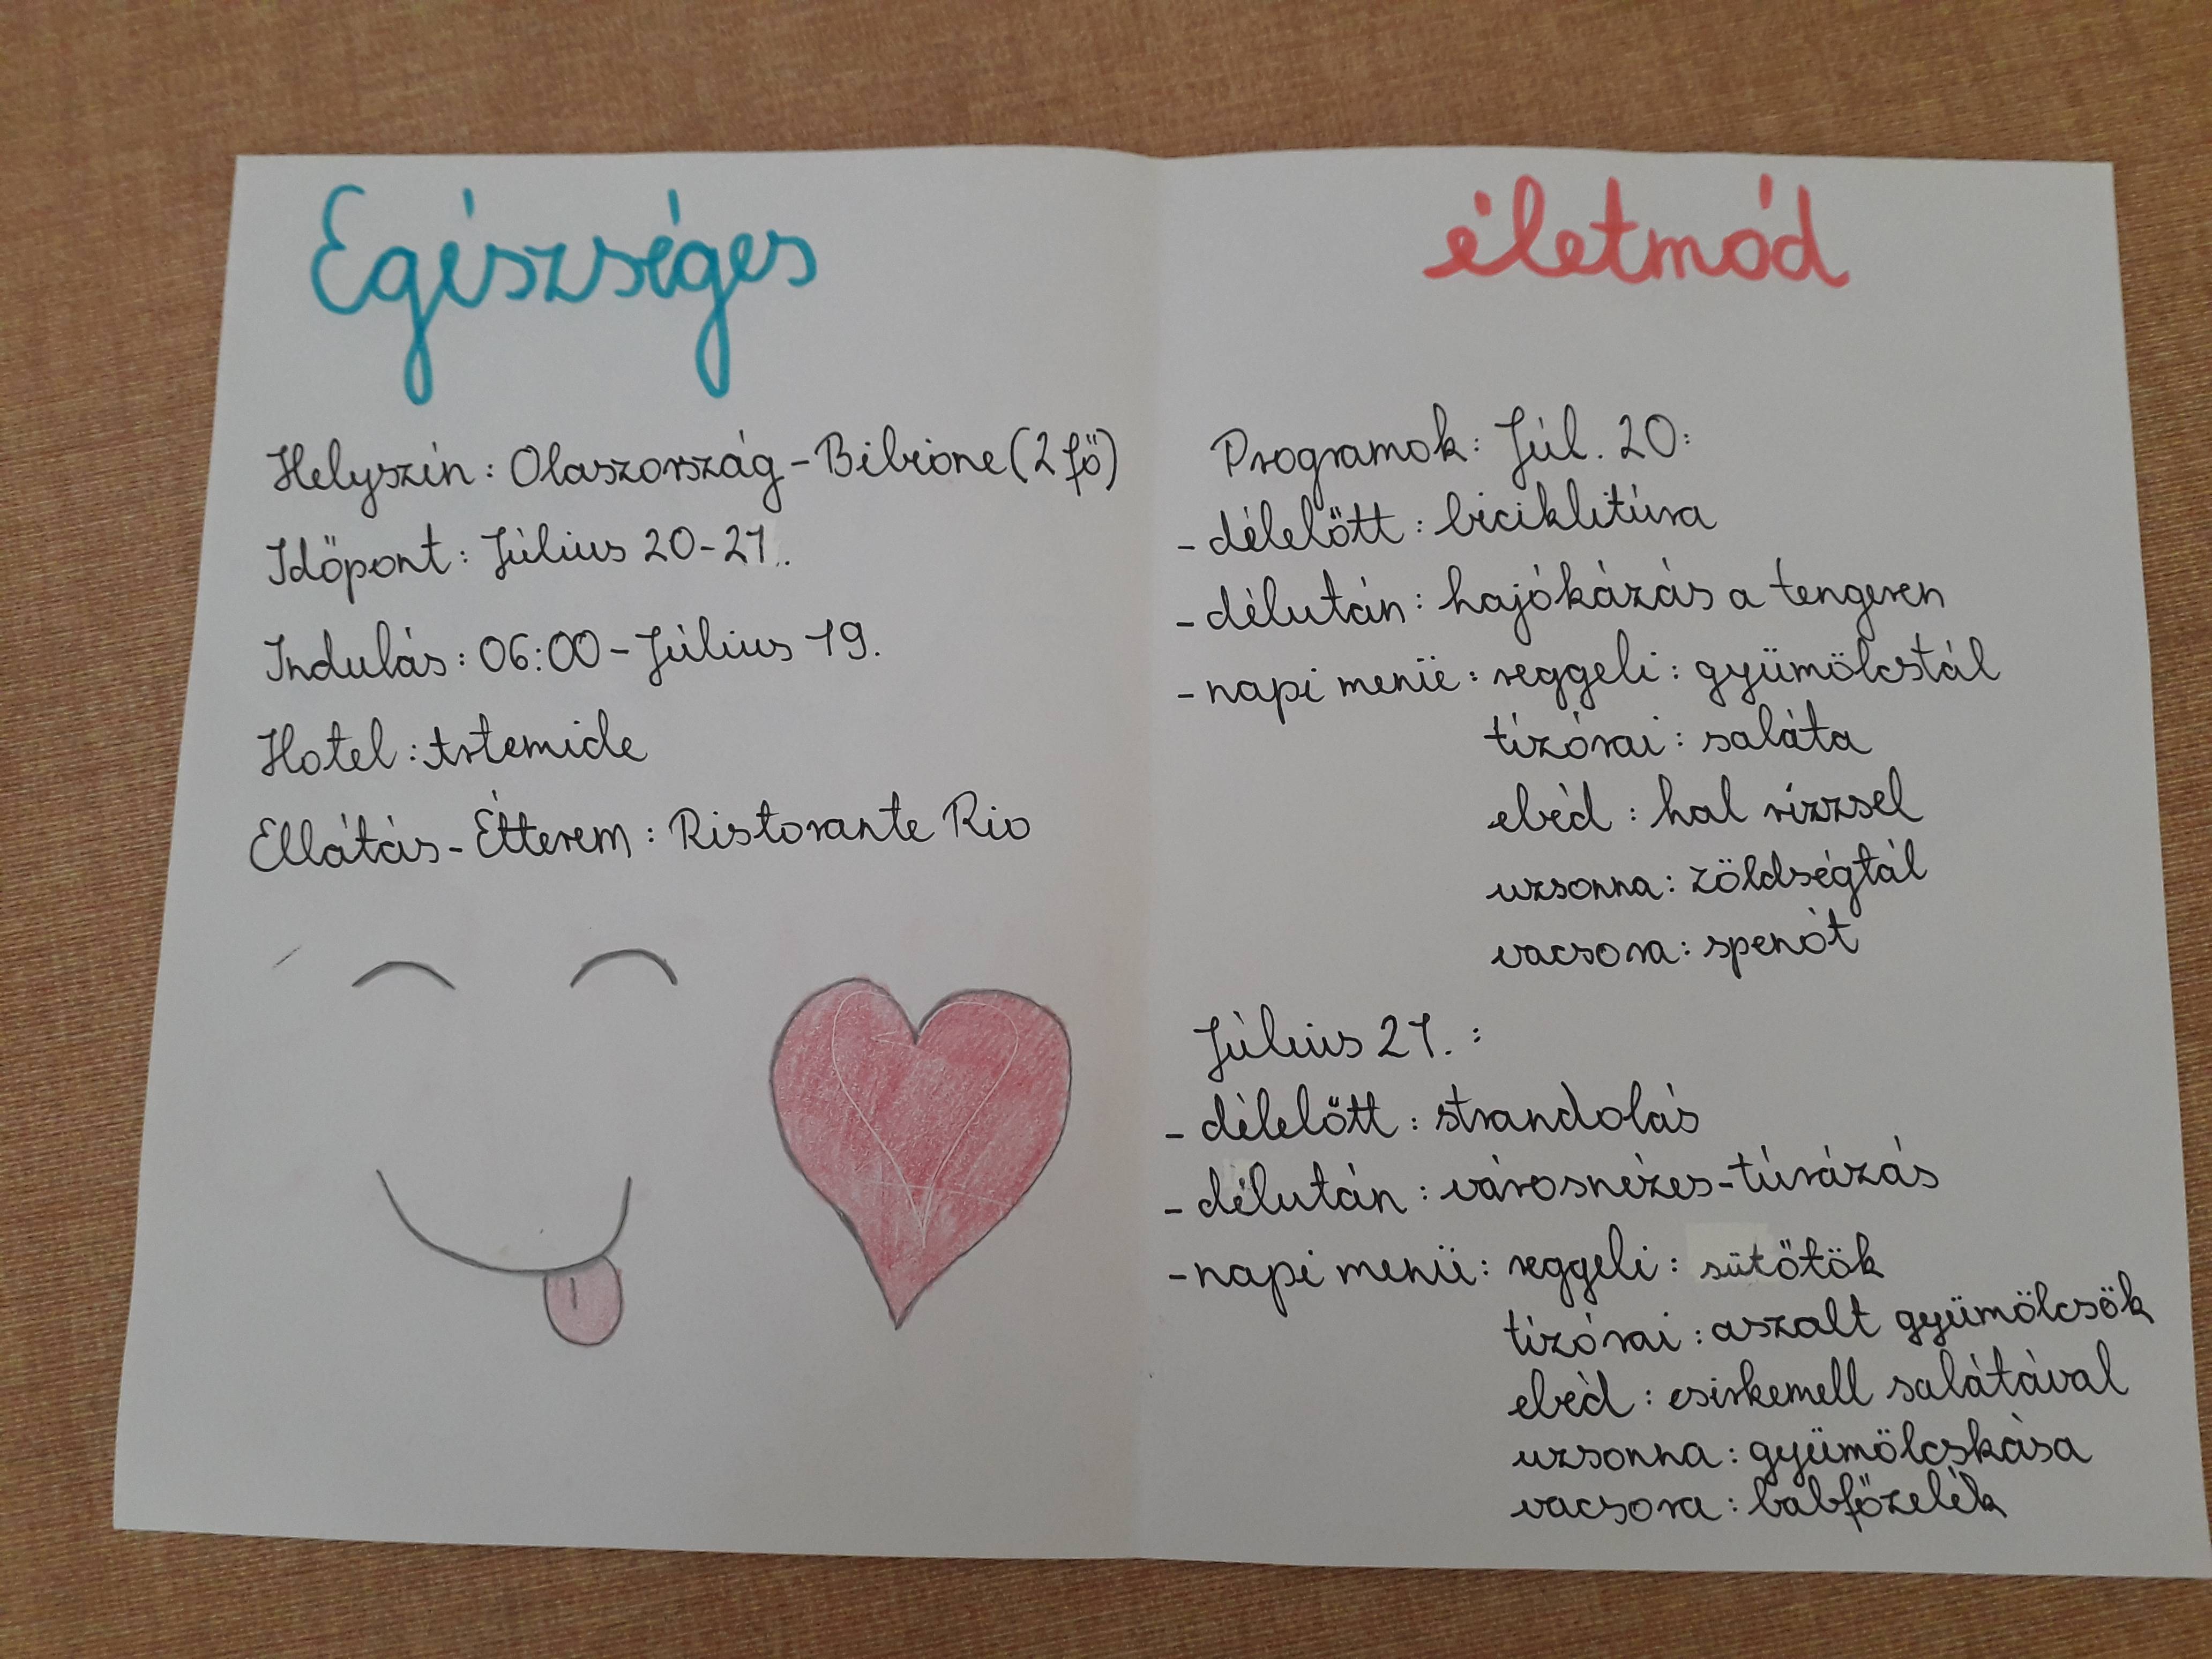 Egészséges
Helyszín: Olaszország-Bibione (2 fő)
Időpont: Július 20-21.
Indulás: 06:00-Július 19.
Hotel: Artemide
Ellátás-Étterem: Ristorante Rio
életmód
Programok: Júl. 20:
- délelőtt: biciklitúra
- délután: hajókázás a tengeren
- napi menü: reggeli: gyümölcstál
tízórai: saláta
ebéd: hal rizzsel
uzsonna: zöldségtál
vacsora: spenót
Július 21. :
- délelőtt: strandolás
- délután: városnézés-túrázás
- napi menü: reggeli: sütőtök
tízórai: aszalt gyümölcsök
ebéd: csirkemell salátával
uzsonna: gyümölcskása
vacsora: babfőzelék